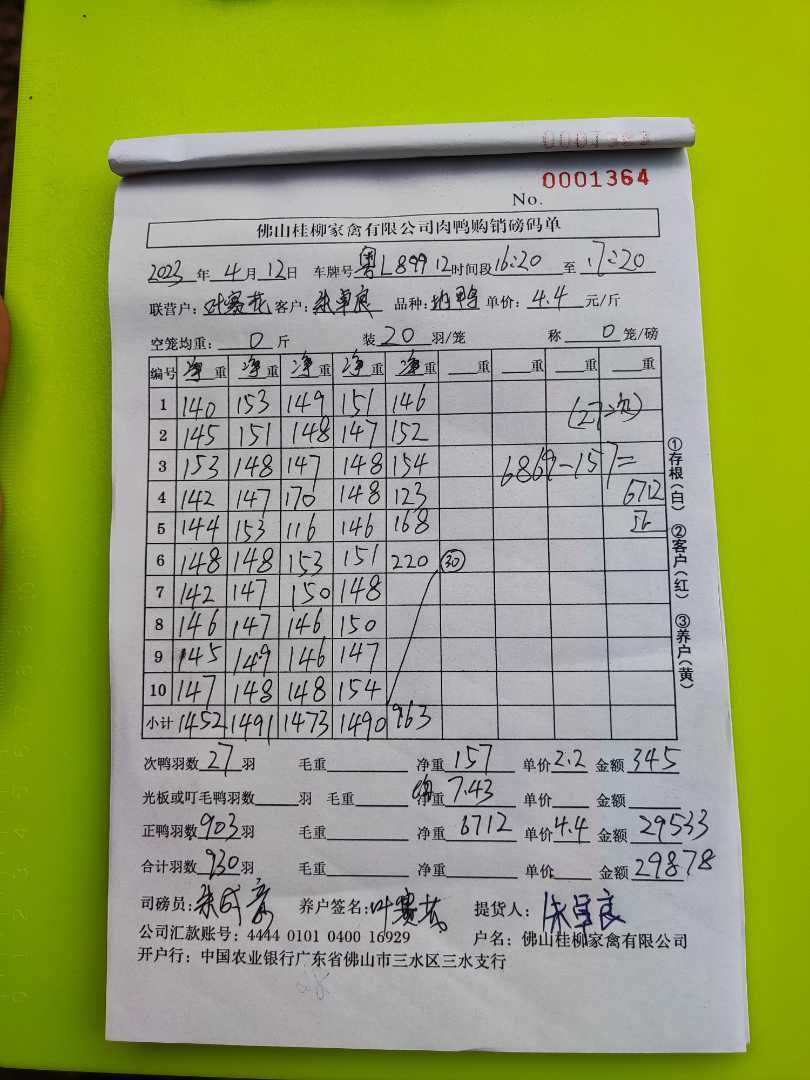 0001364
No.
佛山桂柳家禽有限公司肉鸭购销磅码单
2023年4月12日 车牌号粤L89912时间段16:20至17:20
联营户:叶赛花 客户:朱卓良 品种:肉鸭 单价:4.4元/斤
空笼均重:0斤 装20羽/笼 称0笼/磅
编号 净重 净重 净重 净重 净重 重 重 重 重
1 140 153 149 151 146 (27次)
2 145 151 148 147 152
3 153 148 147 148 154 6869-157=
4 142 147 170 148 123 6712
5 144 153 116 146 168 正
6 148 148 153 151 220 (30)
7 142 147 150 148
8 146 147 146 150
9 145 149 146 147
10 147 148 148 154
小计 1452 1491 1473 1490 963
①存根(白) ②客户(红) ③养户(黄)
次鸭羽数27羽 毛重 净重157 单价2.2 金额345
光板或叮毛鸭羽数 羽 毛重 净重7.43 单价 金额
正鸭羽数903羽 毛重 净重6712 单价4.4 金额29533
合计羽数930羽 毛重 净重 单价 金额29878
司磅员: 养户签名:叶赛花 提货人:朱卓良
公司汇款账号:4444 0101 0400 16929 户名:佛山桂柳家禽有限公司
开户行:中国农业银行广东省佛山市三水区三水支行